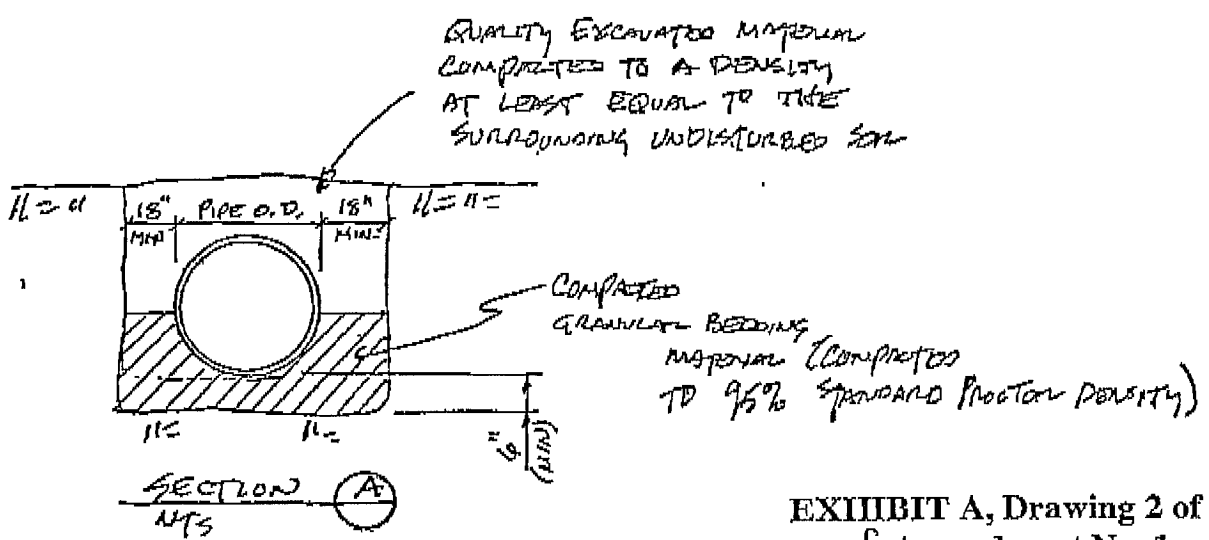 QUALITY EXCAVATED MATERIAL
COMPACTED TO A DENSITY
AT LEAST EQUAL TO THE
SURROUNDING UNDISTURBED SOIL
18" PIPE O.D. 18"
MIN MIN
COMPACTED
GRANULAR BEDDING
MATERIAL (COMPACTED
TO 95% STANDARD PROCTOR DENSITY)
6"
(MIN)
SECTION A
NTS
EXHIBIT A, Drawing 2 of